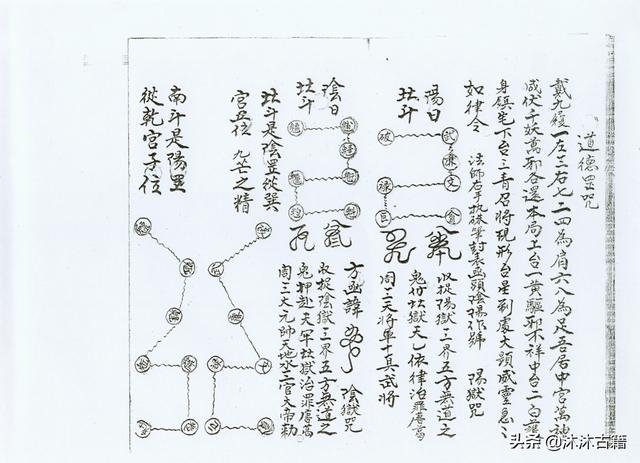 道德罡咒
戴九履一左三右七二四為肩六八為足吾居中宮萬神
咸伏千妖萬邪各還本局上台一黃驅邪不祥中台二白護
身鎮宅下台三青召將現形台星到處大顯威靈急急
如律令　法師右手執硃筆封表函頭陰陽作號　陽獄咒
陽日
北斗
破 武 廉 文 祿 巨 貪
收捉陽獄三界五方無道之
鬼付北獄天一依律治罪唐葛
周三天將軍十真武將
陰日
北斗
方函諱　陰獄咒
收捉陰獄三界五方無道之
鬼押赴天牢北獄治罪唐葛
周三大元帥天地水三官大帝勅
北斗是陰罡從巽
宮五位　九芒之精
南斗是陽罡
從乾宮子位
头条@沐沐古籍